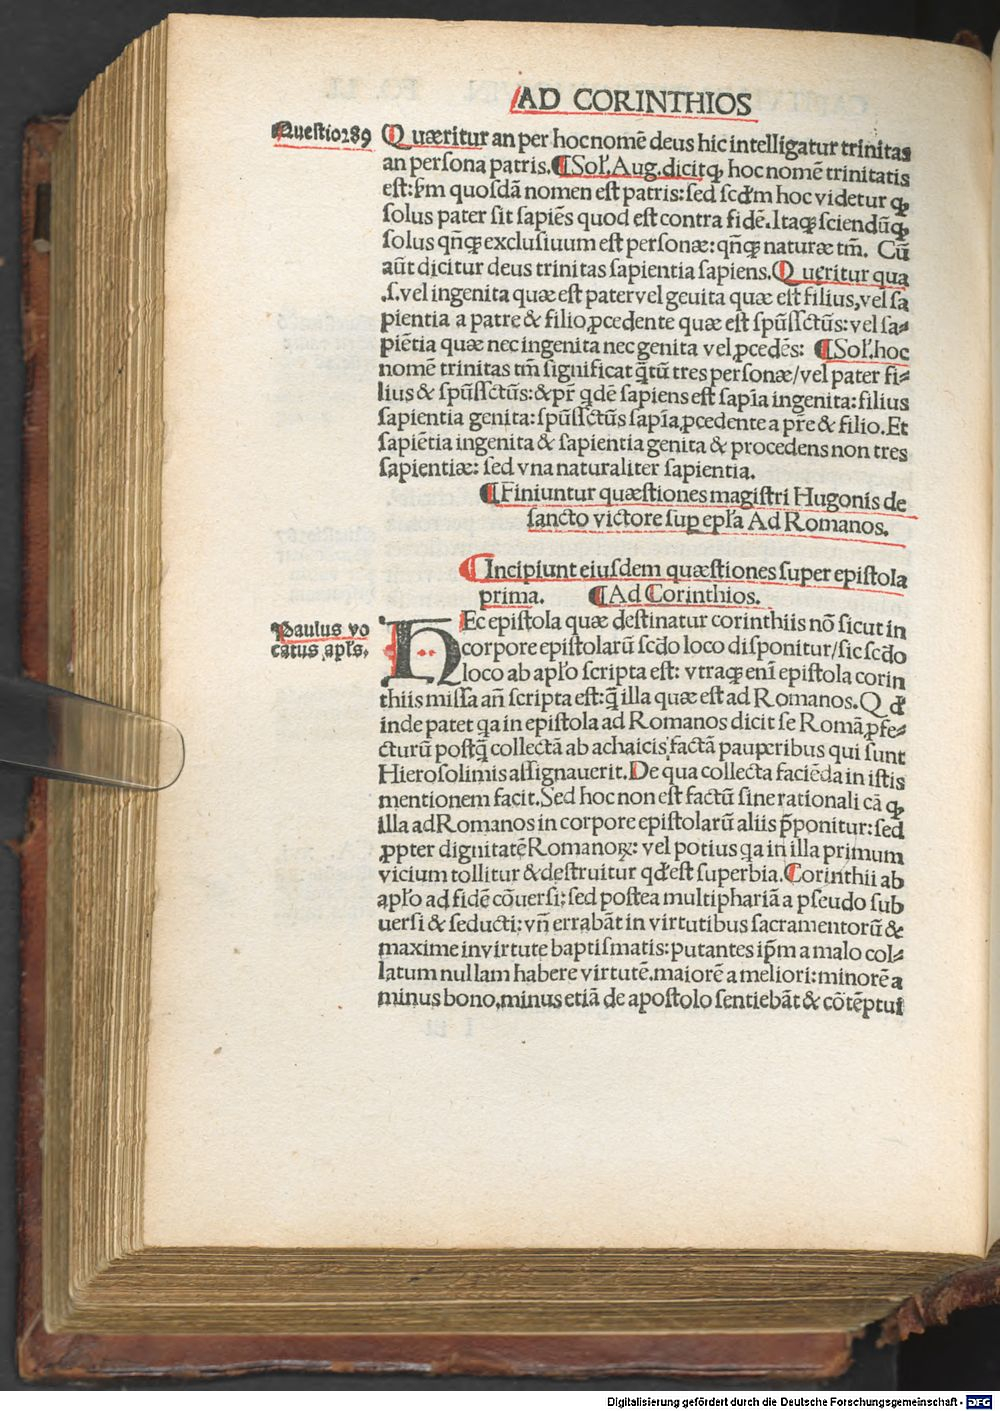 AD CORINTHIOS
Questio 289
Quæritur an per hoc nomē deus hic intelligatur trinitas
an persona patris. ¶ Sol'. Aug. dicit ꝙ hoc nomē trinitatis
est: ẜm quosdā nomen est patris: sed scd'm hoc videtur ꝙ
solus pater sit sapiēs quod est contra fidē. Itaqꝫ sciendū ꝙ
solus qn̄qꝫ exclusiuum est personæ: qn̄qꝫ naturæ tm̄. Cū
aūt dicitur deus trinitas sapientia sapiens. Queritur qua
.s. vel ingenita quæ est pater vel geuita quæ est filius, vel sa
pientia a patre & filio ꝓcedente quæ est spūssctūs: vel sa⸗
piētia quæ nec ingenita nec genita vel ꝓcedēs: ¶ Sol'. hoc
nomē trinitas tm̄ significat q̄tū tres personæ/ vel pater fi⸗
lius & spūssctūs: & pr̄ qdē sapiens est sapīa ingenita: filius
sapientia genita: spūssctūs sapīa ꝓcedente a pr̄e & filio. Et
sapiētia ingenita & sapientia genita & procedens non tres
sapientiæ: sed vna naturaliter sapientia.
¶ Finiuntur quæstiones magistri Hugonis de
sancto victore suꝑ epl'a Ad Romanos.
¶ Incipiunt eiusdem quæstiones super epistola
prima. ¶ Ad Corinthios.
Paulus vo
catus apl's.
HEc epistola quæ destinatur corinthiis nō sicut in
corpore epistolarū scdo loco disponitur/ sic scdo
loco ab apl'o scripta est: vtraqꝫ enī epistola corin
thiis missa añ scripta est: q̄ illa quæ est ad Romanos. Qd'
inde patet qa in epistola ad Romanos dicit se Romā ꝓfe⸗
cturū postq̄ collectā ab achaicis factā pauperibus qui sunt
Hierosolimis assignauerit. De qua collecta faciēda in istis
mentionem facit. Sed hoc non est factū sine rationali cā ꝙ
illa ad Romanos in corpore epistolarū aliis p̄ponitur: sed
ꝓpter dignitatē Romanoꝝ: vel potius qa in illa primum
vicium tollitur & destruitur qd' est superbia. Corinthii ab
apl'o ad fidē cōuersi: sed postea multiphariā a pseudo sub
uersi & seducti: vñ errabāt in virtutibus sacramentorū &
maxime in virtute baptismatis: putantes ip̄m a malo col⸗
latum nullam habere virtutē. maiorē a meliori: minorē a
minus bono, minus etiā de apostolo sentiebāt & cōtēptui
Digitalisierung gefördert durch die Deutsche Forschungsgemeinschaft - DFG